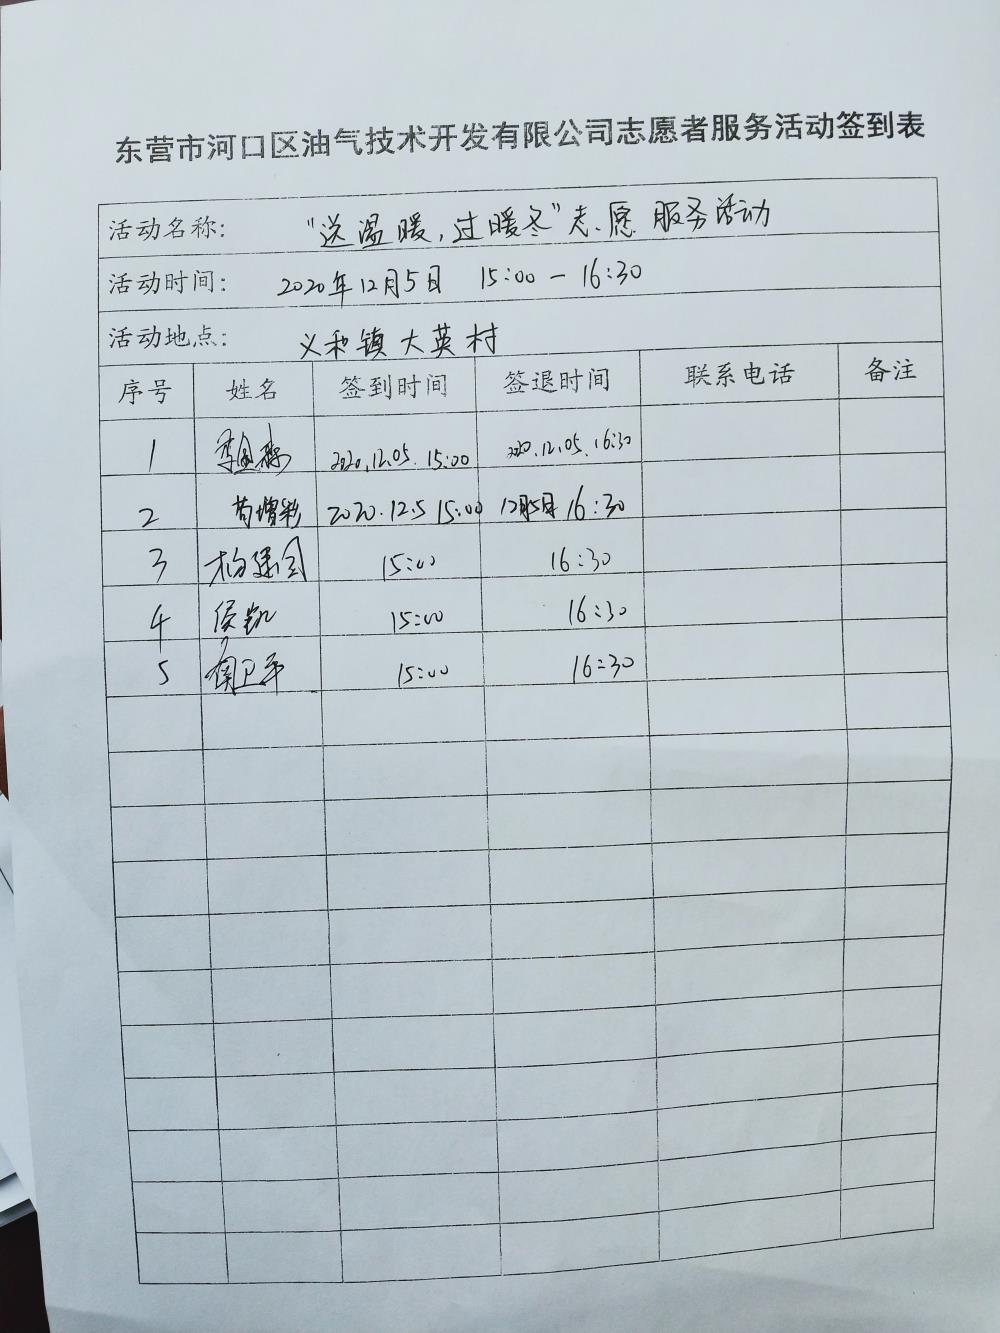 东营市河口区油气技术开发有限公司志愿者服务活动签到表
活动名称： "送温暖，过暖冬"志愿服务活动
活动时间： 2020年12月5日 15:00－16:30
活动地点： 义和镇大英村
序号 姓名 签到时间 签退时间 联系电话 备注
1 2020.12.05. 15:00 2020.12.05. 16:30
2 苟增彩 2020.12.5 15:00 12月5日 16:30
3 15:00 16:30
4 侯凯 15:00 16:30
5 卫平 15:00 16:30